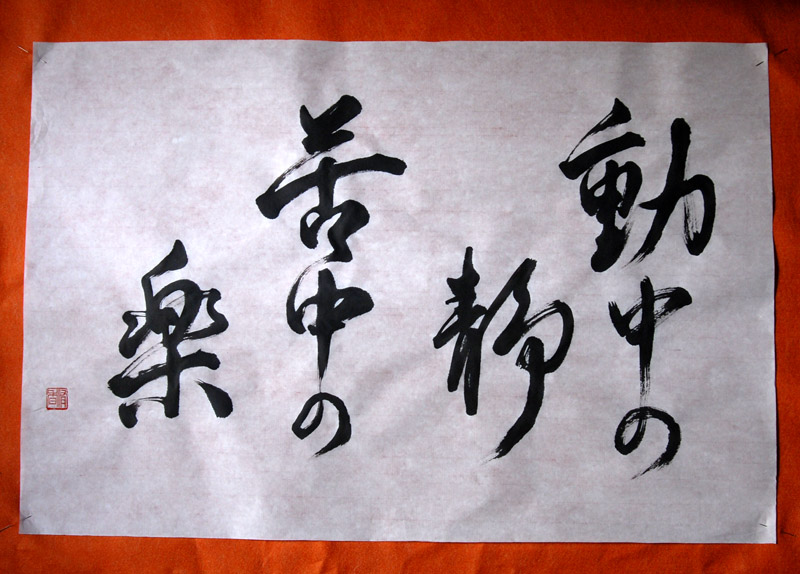 動中の
静
苦中の
楽